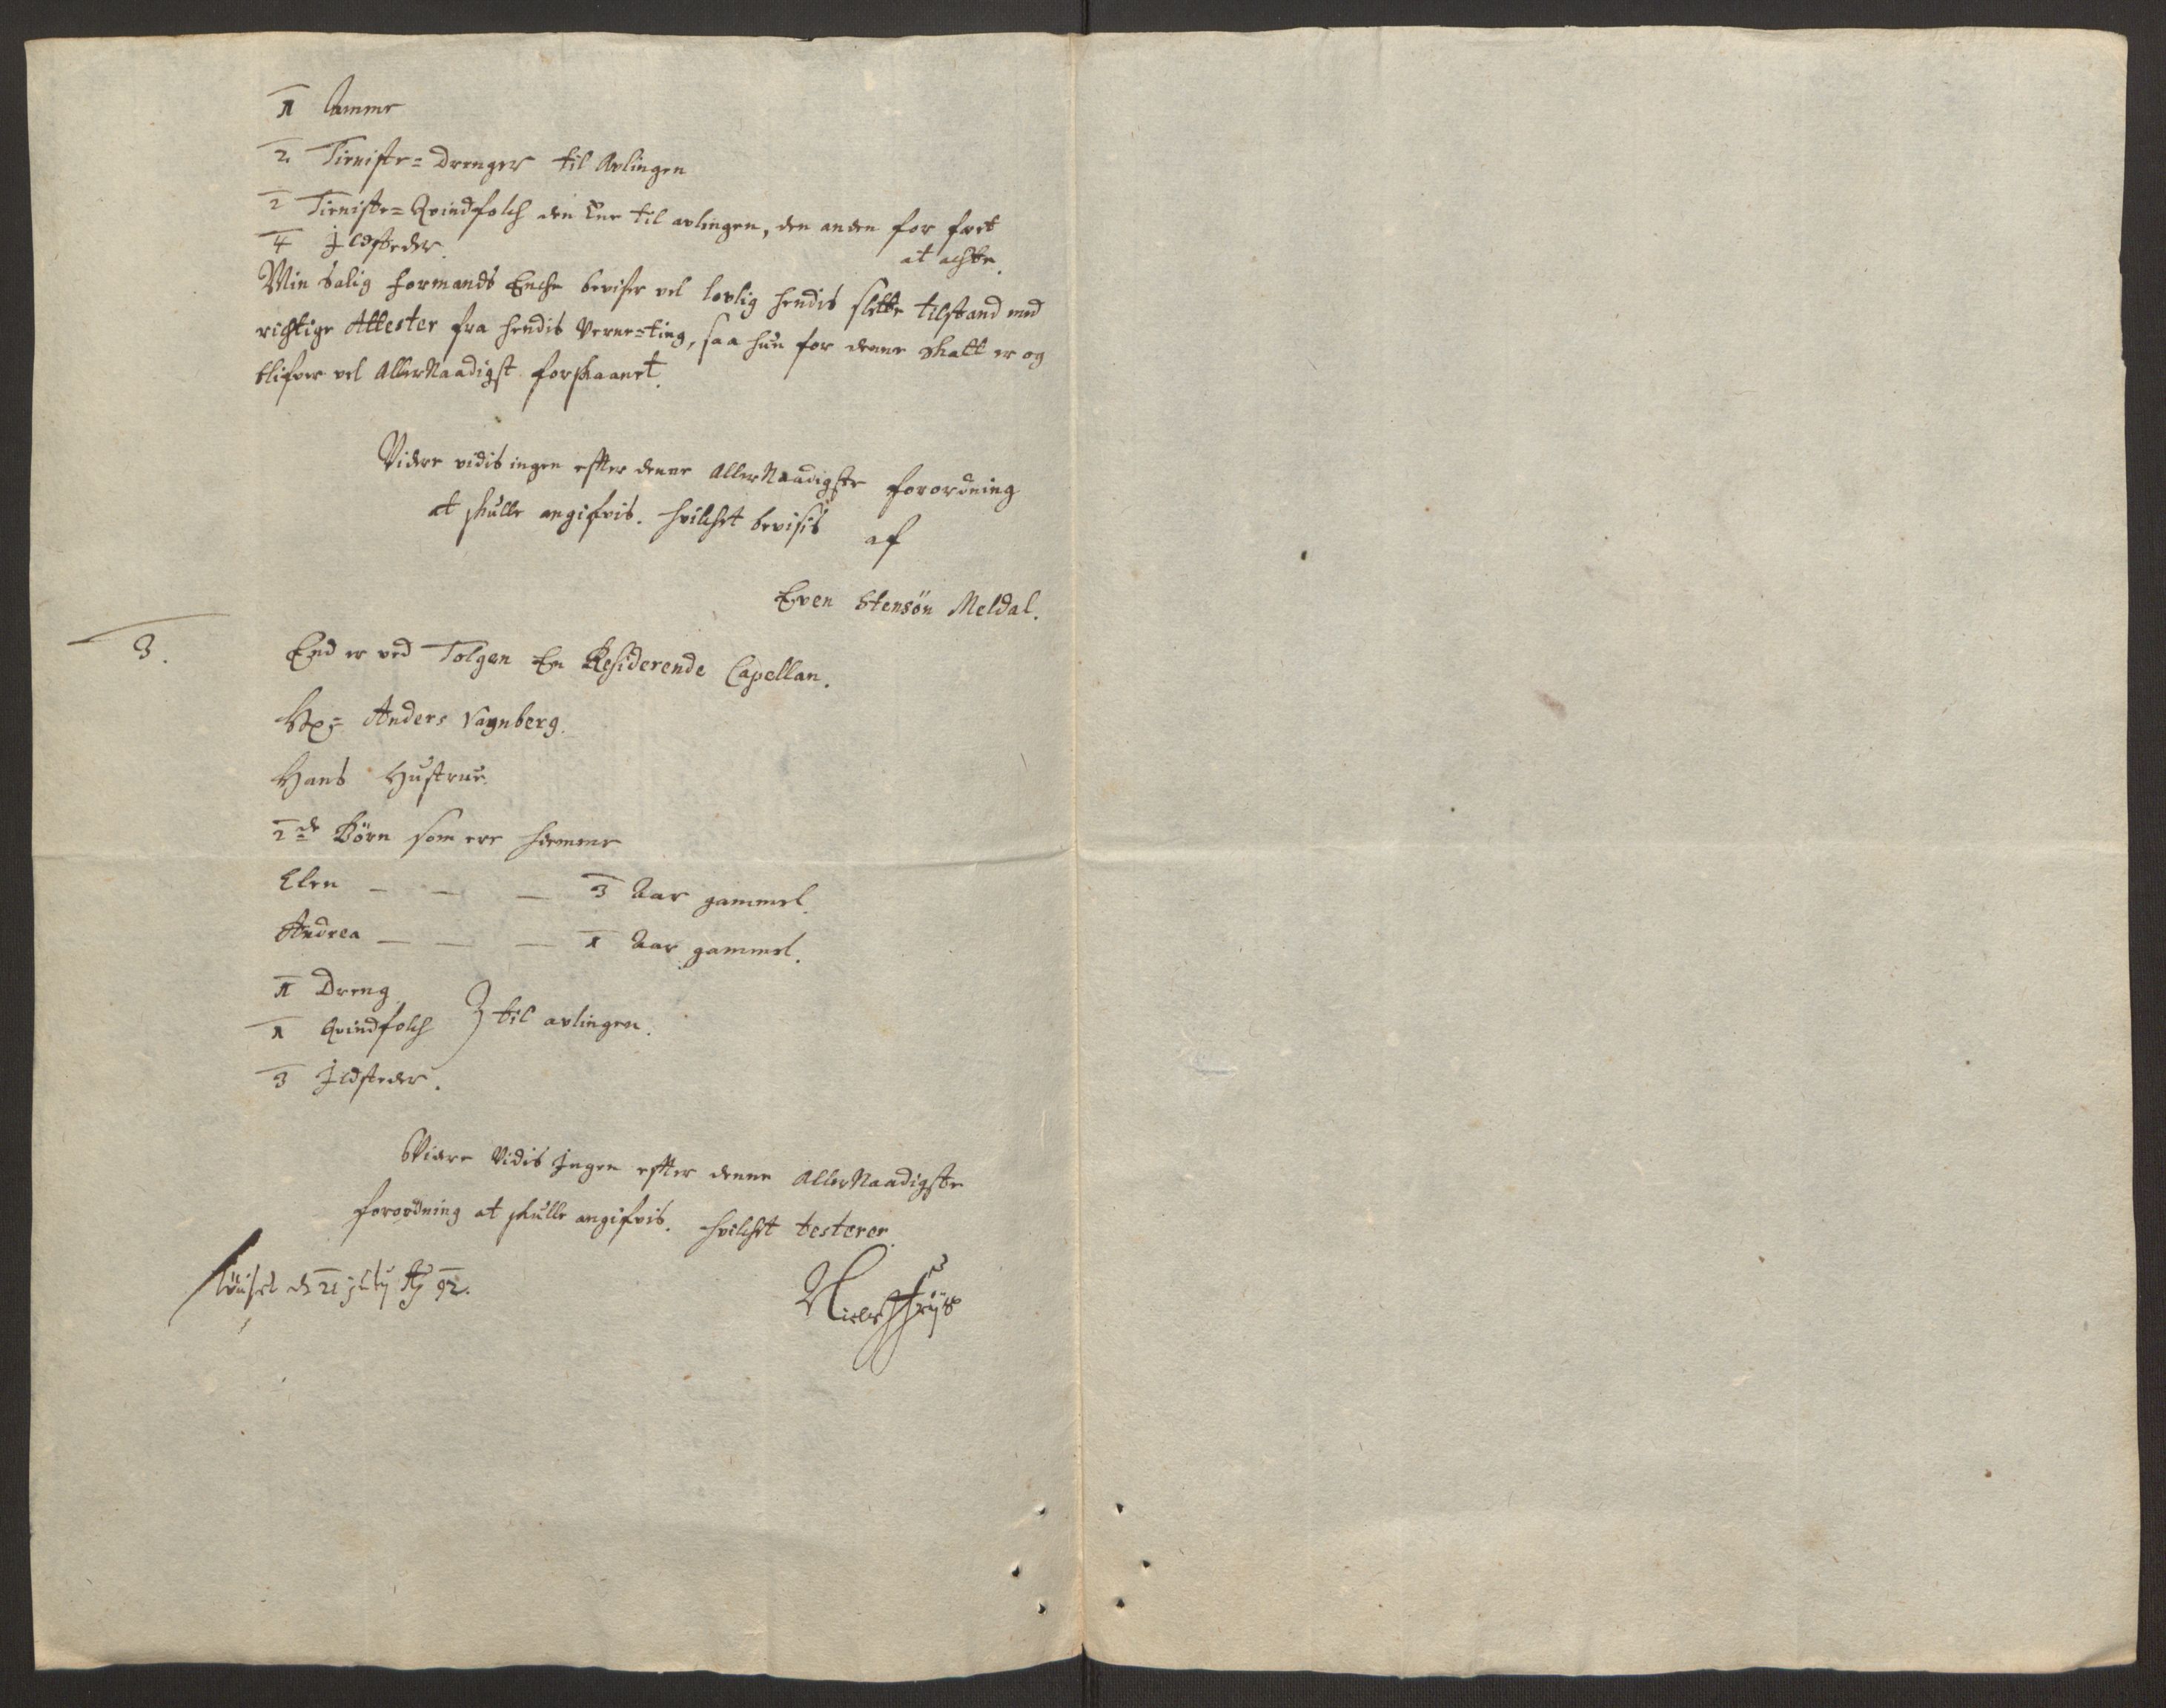 1 Amme
2 Tieniste= Drenger til Avlingen
2 Tieniste= Qvindfolch den Ene til avlingen, den anden for fæet
at achte.
4 Jldsteder.
Min Salig formands Enche beviser vel lovlig hendis slette tilstand med
richtige Attester fra hendis Verne=ting, saa hun for denne Skatt er og
blifver vel AllerNaadigst forskaanet.
Videre vidis ingen effter denne AllerNaadigste forordning
at skulle angifvis. hvilchet bevisis af
Even Stensön Meldal.
3.
End er ved Tolgen En Residerende Capellan.
Hr= Anders
Hans Hustrue.
2de Börn som ere hiemme
Elen — — — 3 Aar gammel.
Andrea — — — 1 Aar gammel.
1 Dreng
1 Qvindfolch } til avlingen.
3 Jldsteder.
Videre Vidis Jngen effter denne AllerNaadigste
forordning at skulle angifvis. hvilchet testerer.
d 21 july A 92.
Niels